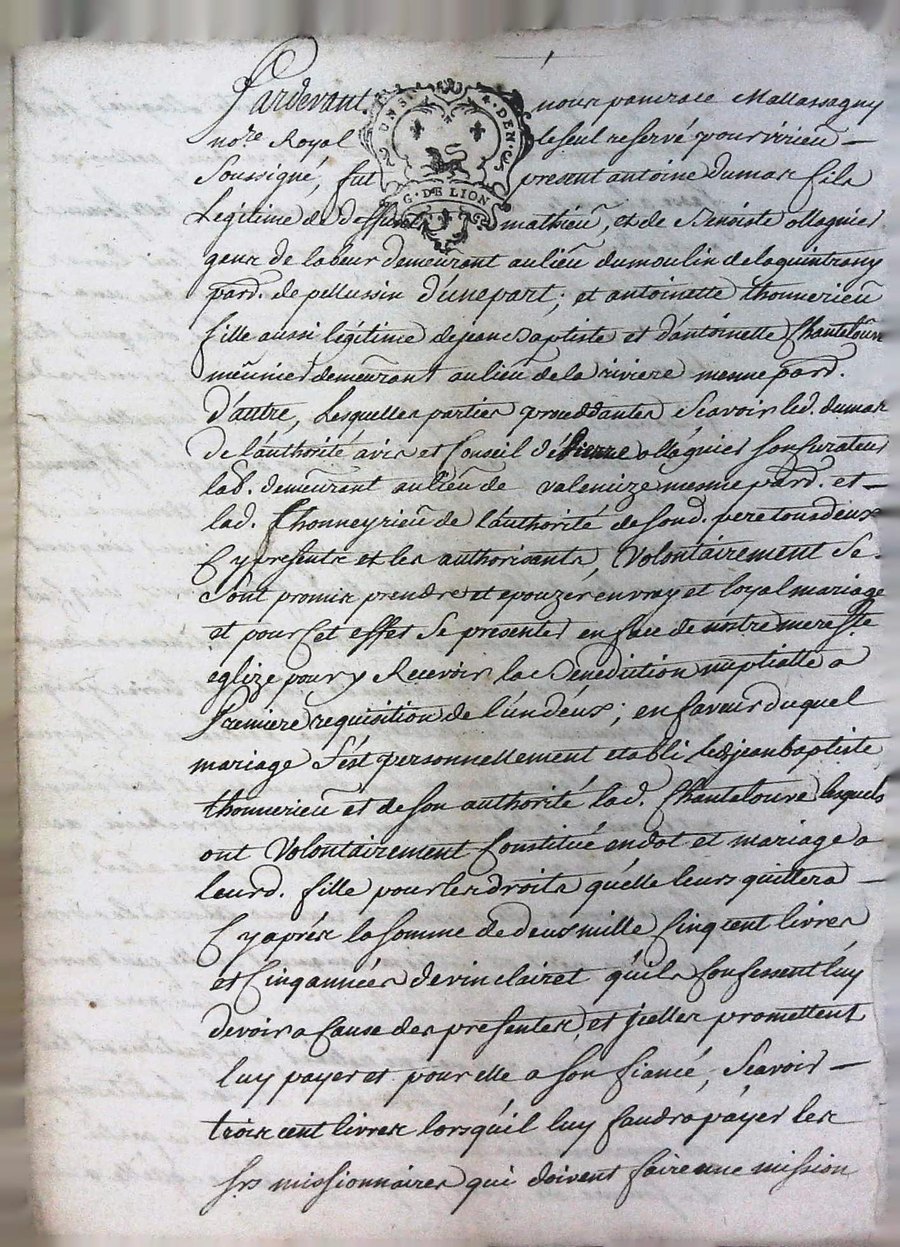 Pardevant nous pancrace Mallassagny
no.re Royal le seul reservé pour virieu —
Soussigné, fut present antoine dumas fils
G. DE LION
Legitime de deffunt mathieu, et de Benoiste ollagnier
gens de labeur demeurant au lieu du moulin de laquintrany
pard. de pellussin d'une part; et antoinette thonnerieu
fille aussi légitime de jean Baptiste et d'antoinette Chanteloure
meûnier demeurant au lieu de la riviere mesme pard.
d'autre, Lesquelles parties proceddantes Scavoir led. dumas
de l'authorité avis et Conseil de Pierre ollagnier son Curateur
lab. demeurant au lieu de valencize mesme pard. et —
lad. Thonneyrieu de l'authorité de sond. pere tous deux
Cy presents et les authorisants, Volontairement Se
Sont promis prendre et epouzer en vray et loyal mariage
et pour Cet effet Se presenter en face de nostre mere Ste
eglize pour y Recevoir la Benediction nuptialle a
Premiere requisition de l'un deux; en faveur duquel
mariage S'est personnellement etabli led. jean baptiste
thonnerieu et de son authorité lad. Chanteloure lesquels
ont Volontairement Constitué en dot et mariage a
leurd. fille pour les droits quelle leurs quittera —
Cy aprés la somme de deux mille Cinq cent livres
et Cinq années de vin clairet qu'ils Confessent luy
devoir a Cause des presentes, et jcelles promettent
luy payer et pour elle a son fiancé, Scavoir —
trois cent livres lorsqu'il luy faudra payer les
Srs missionnaires qui doivent faire une mission